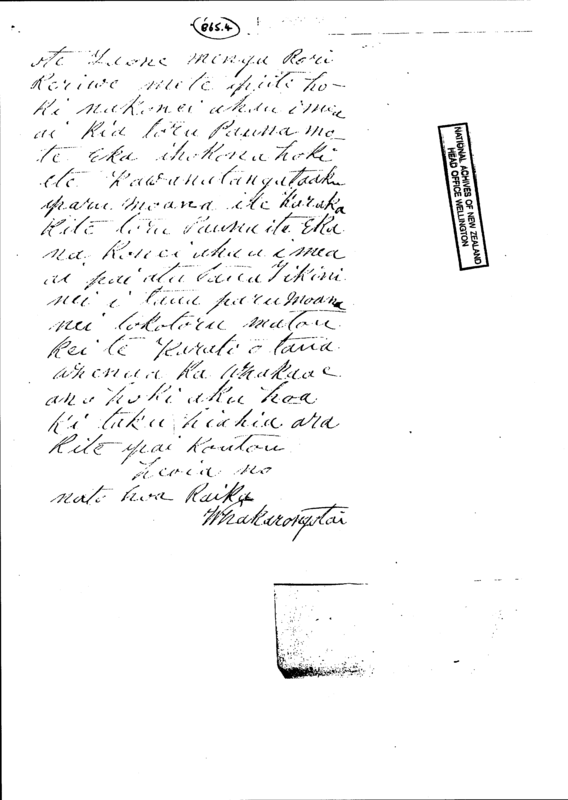 865.4
ote Leone menga Rori
Keriwe mete ipiiti ho-
ki nakonei ahau imea
ai kia toru Pauna mo
te Eka ihokona hoki
ete Kawanatanga taaku
paru moana ite Karaka
Kite toru Pauna ite Eka
na Konei ahau imea
ai pai atu tana Tikini
nei i tana paru moana
nei tokotoru matou
kei te Karati o taua
whenua Ka Whakaae
ano hoki aku hoa
ki taku hiahia ara
Kite pai Koutou
heoia no
nato hoa Raika
Whakarongotai
NATIONAL ACHIVES OF NEW ZEALAND
HEAD OFFICE WELLINGTON